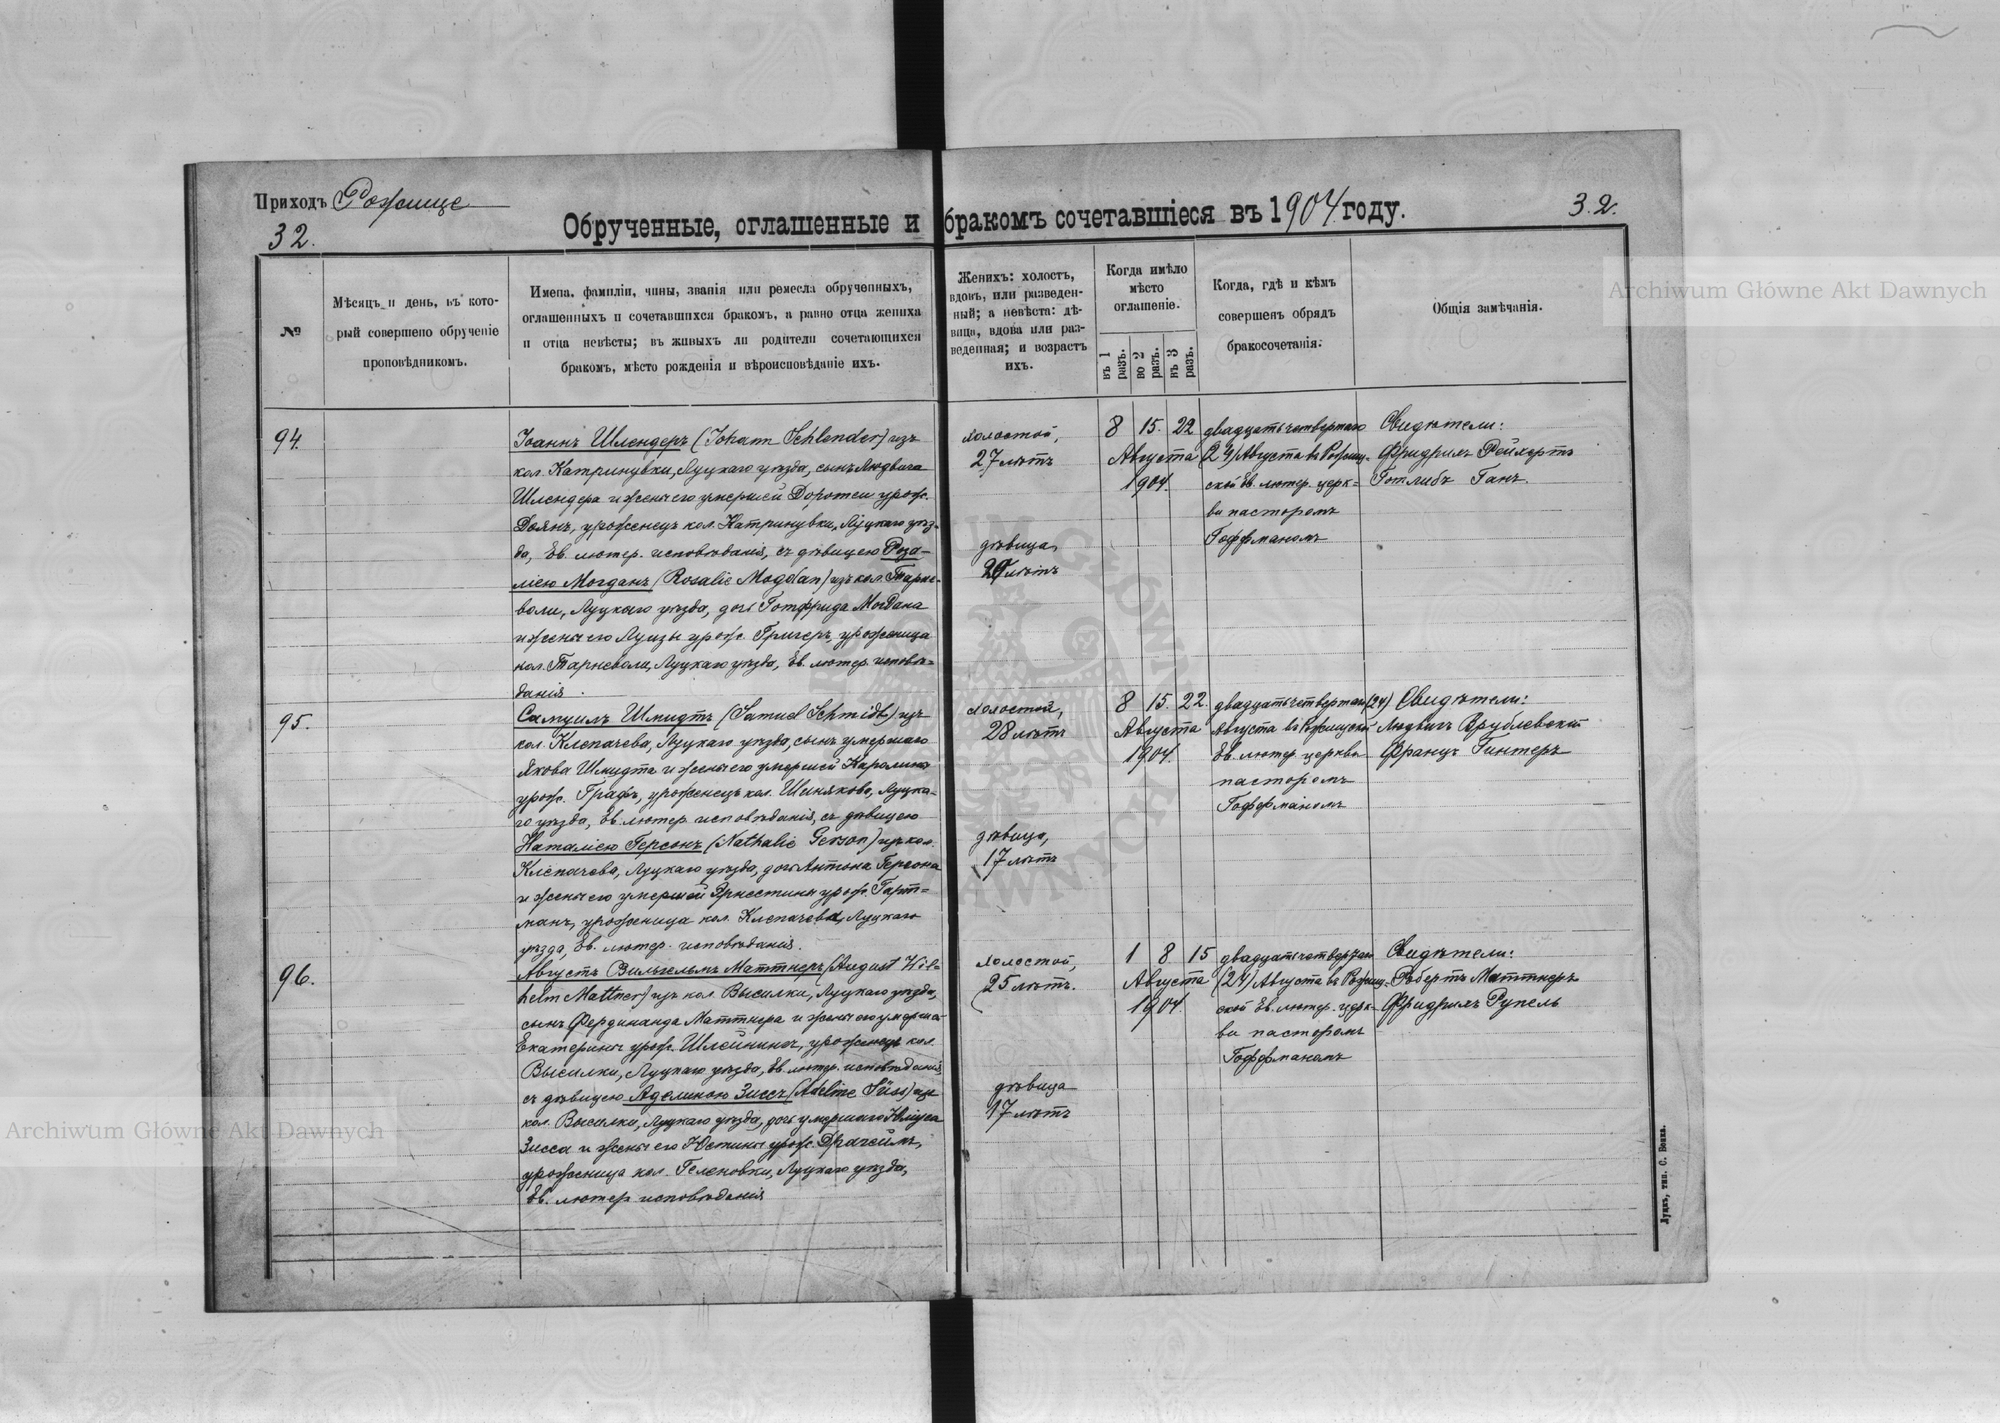 Приходъ Рожище
32.
Обрученные, оглашенные и бракомъ сочетавшіеся въ 1904 году.
32.
№
Мѣсяцъ и день, въ кото-
рый совершено обрученіе
проповѣдникомъ.
Имена, фамиліи, чины, званія или ремесла обрученныхъ,
оглашенныхъ и сочетавшихся бракомъ, а равно отца жениха
и отца невѣсты; въ живыхъ ли родители сочетающихся
бракомъ, мѣсто рожденія и вѣроисповѣданіе ихъ.
Женихъ: холостъ,
вдовъ, или разведен-
ный; а невѣста: дѣ-
вица, вдова или раз-
веденная; и возрастъ
ихъ.
Когда имѣло
мѣсто
оглашеніе.
въ 1 разъ.
во 2 разъ.
въ 3 разъ.
Когда, гдѣ и кѣмъ
совершенъ обрядъ
бракосочетанія.
Общія замѣчанія.
94.
Іоаннъ Шлендеръ (Johann Schlender) изъ
кол. Катринувки, Луцкаго уѣзда, сынъ Людвига
Шлендера и жены его умершей Доротеи урож.
Доянъ, уроженецъ кол. Катринувки, Луцкаго уѣз-
да, Ев. лютер. исповѣданія, съ дѣвицею Роза-
ліею Могданъ (Rosalie Mogdan) изъ кол. Тарне-
воли, Луцкаго уѣзда, дочь Готфрида Могдана
и жены его Луизы урож. Григеръ, уроженица
кол. Тарневоли, Луцкаго уѣзда, Ев. лютер. исповѣ-
данія.
холостой,
27 лѣтъ
дѣвица,
лѣтъ
8 15. 22
Августа
1904.
двадцатьчетвертаго
(24) Августа въ Рожищ-
ской Ев. лютер. церк-
ви пасторомъ
Гоффманомъ
Свидѣтели:
Фридрихъ Рейхертъ
Готлибъ Ганъ.
95.
Самуилъ Шмидтъ (Samuel Schmidt) изъ
кол. Клепачева, Луцкаго уѣзда, сынъ умершаго
Якова Шмидта и жены его умершей Каролины
урож. Графъ, уроженецъ кол. Шиняково, Луцка-
го уѣзда, Ев. лютер. исповѣданія, съ дѣвицею
Наталіею Герсонъ (Nathalie Gerson) изъ кол.
Клепачева, Луцкаго уѣзда, дочь Антона Герсона
и жены его умершей Эрнестины урож. Гарт-
манъ, уроженица кол. Клепачева, Луцкаго
уѣзда, Ев. лютер. исповѣданія.
холостой,
28 лѣтъ
дѣвица,
17 лѣтъ
8 15. 22.
Августа
1904.
двадцатьчетвертаго (24)
Августа въ Рожищской
Ев. лютер. церкви
пасторомъ
Гоффманомъ
Свидѣтели:
Людвигъ Врублевскій
Францъ Гинтеръ
96.
Августъ Вильгельмъ Маттнеръ (August Wil-
helm Mattner) изъ кол. Высилки, Луцкаго уѣзда,
сынъ Фердинанда Маттнера и жены его умершей
Екатерины урож. Шлейнингъ, уроженецъ кол.
Высилки, Луцкаго уѣзда, Ев. лютер. исповѣданія,
съ дѣвицею Аделиною Зиссъ (Adeline Süss) изъ
кол. Высилки, Луцкаго уѣзда, дочь умершаго Юліуса
Зисса и жены его Юстины урож. Драгеймъ,
уроженица кол. Геленовки, Луцкаго уѣзда,
Ев. лютер. исповѣданія
холостой,
25 лѣтъ.
дѣвица
17 лѣтъ
1 8 15
Августа
1904.
двадцатьчетвертаго
(24) Августа въ Рожищ-
ской Ев. лютер. церк-
ви пасторомъ
Гоффманомъ
Свидѣтели:
Робертъ Маттнеръ
Фридрихъ Рупель
Луцкъ, тип. С. Бонка.
Archiwum Główne Akt Dawnych
Archiwum Główne Akt Dawnych